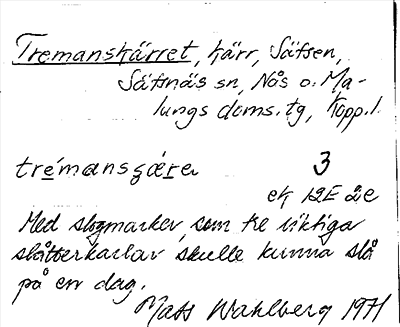 Tremanskärret, kärr, Säfsen,
Säfsnäs sn, Nås o. Ma-
lungs doms. tg, Kopp. l.
trémansçæ̀ra 3
ek 12E 2e
Med slogmarker, som tre riktiga
slåtterkarlar skulle kunna slå
på en dag.
Mats Wahlberg 1971